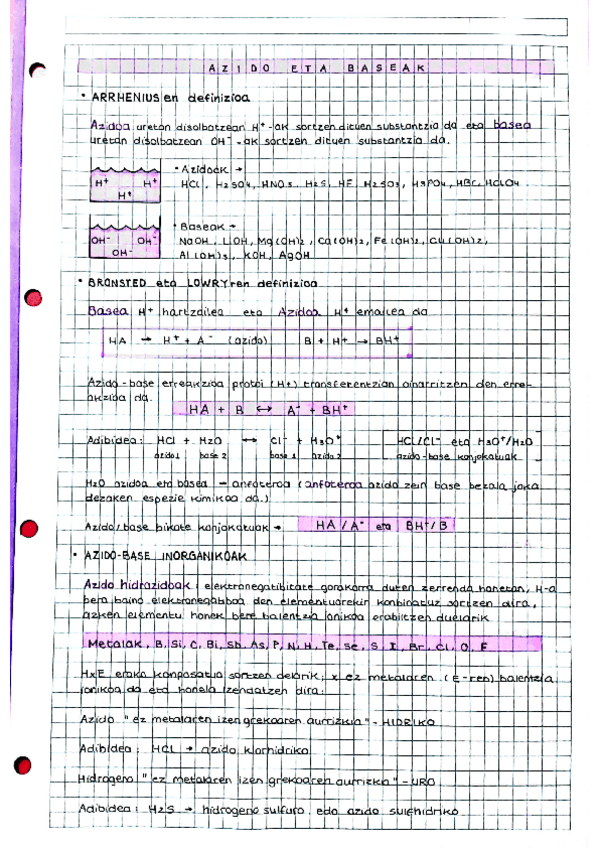 AZIDO ETA BASEAK
• ARRHENIUSen definizioa
Azidoa uretan disolbatzean H⁺-ak sortzen dituen substantzia da eta basea
uretan disolbatzean OH⁻-ak sortzen dituen substantzia da.
• Azidoak →
H⁺ H⁺
H⁺
HCl, H₂SO₄, HNO₃, H₂S, HF, H₂SO₃, H₃PO₄, HBr, HClO₄
• Baseak →
OH⁻ OH⁻
OH⁻
NaOH, LiOH, Mg(OH)₂, Ca(OH)₂, Fe(OH)₂, Cu(OH)₂,
Al(OH)₃, KOH, AgOH
• BRONSTED eta LOWRYren definizioa
Basea H⁺ hartzailea eta Azidoa H⁺ emailea da
HA → H⁺ + A⁻ (azido) B + H⁺ → BH⁺
Azido-base erreakzioa protoi (H+) transferentzian oinarritzen den erre-
akzioa da.
HA + B ↔ A⁻ + BH⁺
Adibidea: HCl + H₂O ↔ Cl⁻ + H₃O⁺ [HCl/Cl⁻ eta H₃O⁺/H₂O
azido1 base 2 base 1 azido 2 azido-base konjokatuak]
H₂O azidoa eta basea → anfoteroa (anfoteroa azido zein base bezala joka
dezaken espezie kimikoa da.)
Azido/base bikote konjokatuak → HA/A⁻ eta BH⁺/B
• AZIDO-BASE INORGANIKOAK
Azido hidrazidoak: elektronegatibitate gorakorra duten zerrenda honetan, H-a
bera baino elektronegatiboa den elementuarekin konbinatuz sortzen dira,
azken elementu honek bere balentzia ionikoa erabiltzen duelarik
Metalak, B, Si, C, Bi, Sb, As, P, N, H, Te, Se, S, I, Br, Cl, O, F
HxE erako konposatua sortzen delarik, x ez metalaren (E-ren) balentzia
ionikoa da eta honela izendatzen dira:
Azido "ez metalaren izen grekoaren aurrizkia" - HIDRIKO
Adibidea: HCl → azido klorhidriko
Hidrogeno "ez metalaren izen grekoaren aurrizkia" - URO
Adibidea: H₂S → hidrogeno sulfuro edo azido sulfhidriko